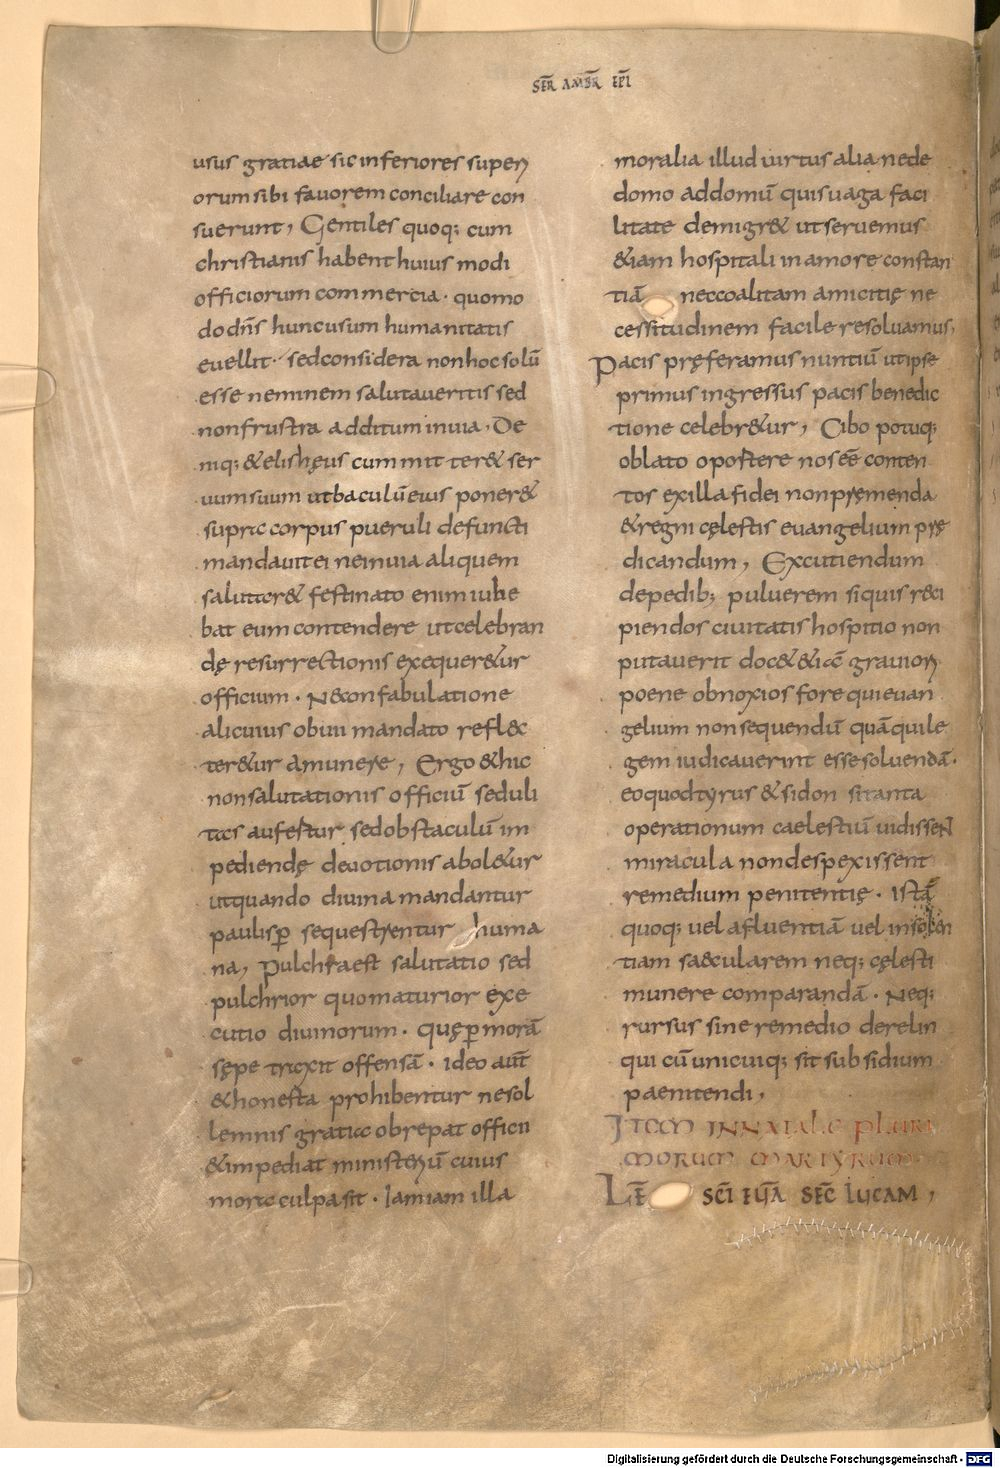 SER̄ AMBR̄ EP̄I
usus gratiae sic inferiores superi
orum sibi fauorem conciliare con
suerunt, Gentiles quoq; cum
christianis habent huius modi
officiorum commercia · quomo
do dn̄s hunc usum humanitatis
euellit · sed considera non hoc solū
esse neminem salutaueritis sed
non frustra additum in uia, De
niq; & elishęus cum mitteret& ser
uum suum ut baculū eius poner&
supra corpus pueruli defuncti
mandauit ei ne in uia aliquem
salutar& festinato enim iube
bat eum contendere ut celebran
dę resurrectionis exequer&ur
officium · N& confabulatione
alicuius obuii mandato refl&c
ter&ur a munere, Ergo & hic
non salutationis officiū seduli
tas aufertur sed obstaculū im
pediendę deuotionis abol&ur
ut quando diuina mandantur
paulisp̄ sequestrentur huma
na, Pulchra est salutatio sed
pulchrior quo maturior exe
cutio diuinorum · quę p̄ morā
sępe traxit offensā · ideo aut̄
& honesta prohibentur ne sol
lemnis gratiae obrepat officii
& impediat ministeriū cuius
mora culpa sit · Iam iam illa
moralia illud uirtus alia ne de
domo ad domū quis uaga faci
litate demigr& ut seruemus
&iam hospitali in amore constan
tiā nec coalitam amicitię ne
cessitudinem facile resoluamus,
Pacis pręferamus nuntiū ut ipse
primus ingressus pacis benedic
tione celebr&ur, Cibo potuq;
oblato oportere nos eē conten
tos ex illa fidei non premenda
& regni cęlestis euangelium prę
dicandum, Excutiendum
de pedib; puluerem si quis r&ci
piendos ciuitatis hospitio non
putauerit doc& & iā grauiori
poene obnoxios fore qui euan
gelium non sequendū quā qui le
gem iudicauerint esse soluendā ·
eo quod tyrus & sidon si tanta
operationum caelestiū uidissent
miracula non despexissent
remedium penitentię · Istā
quoq; uel afluentiā uel insolen
tiam saecularem neq; cęlesti
munere comparandā · Neq;
rursus sine remedio derelin
qui cū unicuiq; sit subsidium
paenitendi,
ITEM IN NATALE PLURI
MORUM MARTYRUM
LĒ SCĪ EUĀ SEC̄ LUCAM,
Digitalisierung gefördert durch die Deutsche Forschungsgemeinschaft - DFG